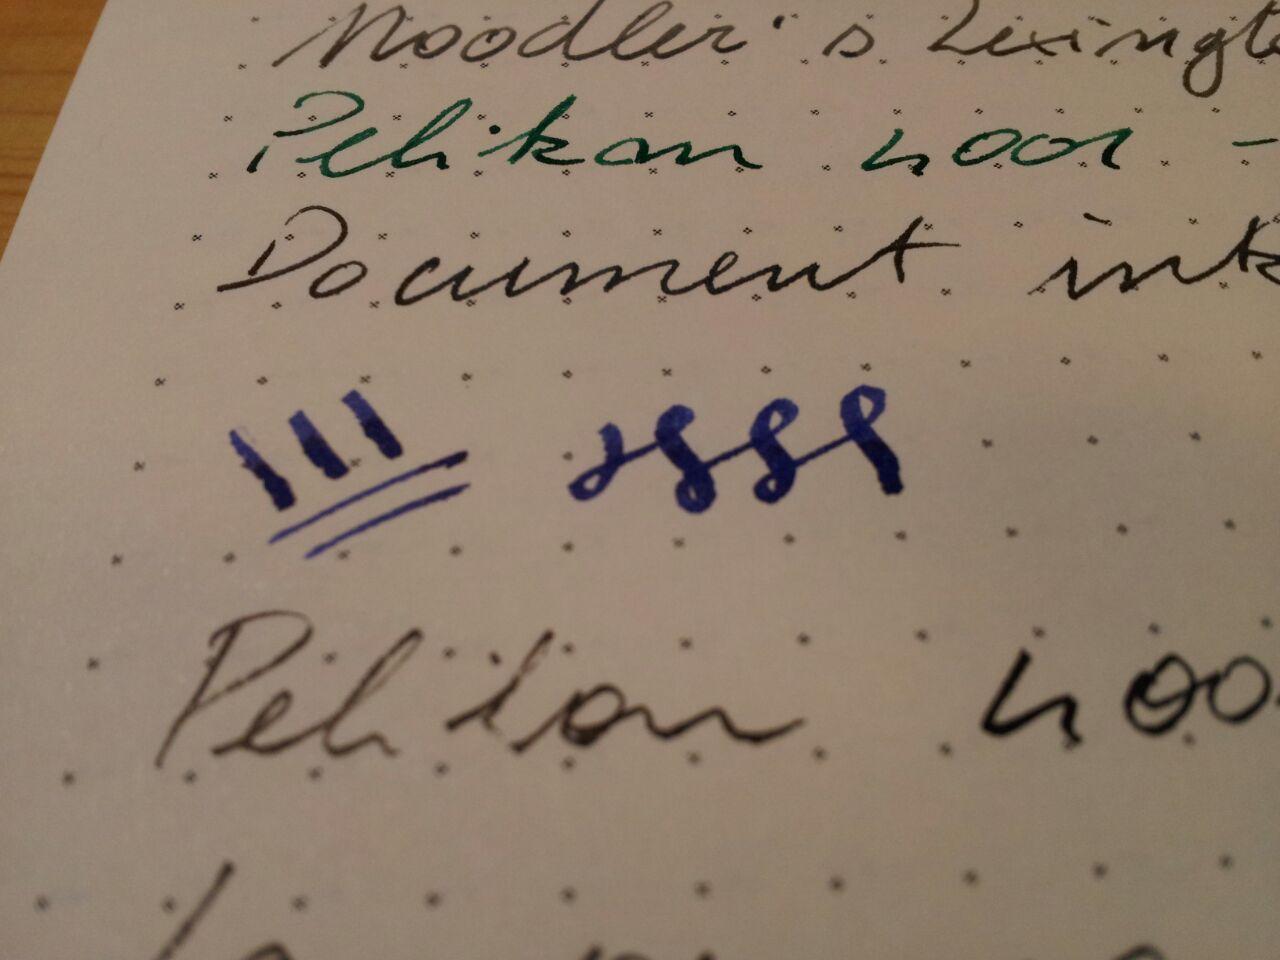 Noodler's Lexingt
Pelikan 4001 -
Document ink
Pelikan 400